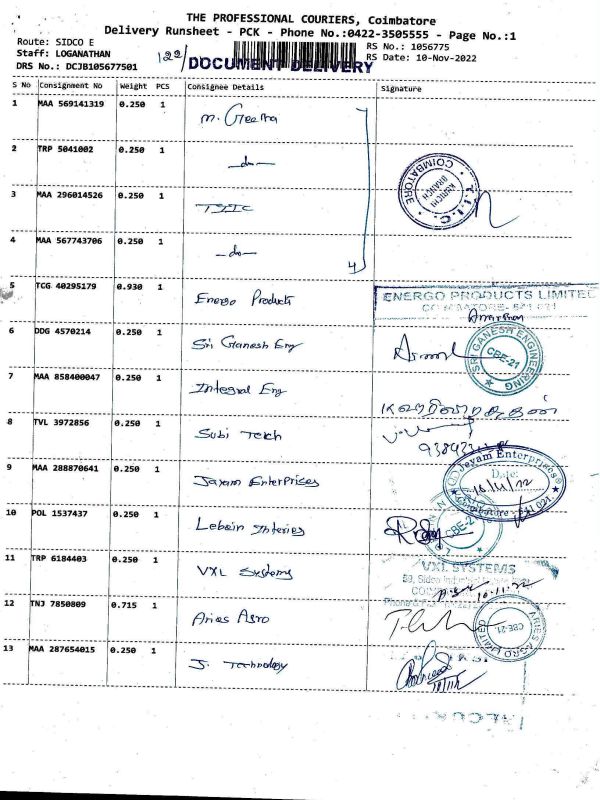 THE PROFESSIONAL COURIERS, Coimbatore
Delivery Runsheet - PCK - Phone No.:0422-3505555 - Page No.:1
Route: SIDCO E
Staff: LOGANATHAN
DRS No.: DCJB105677501
122/
DOCUMENT DELIVERY
RS No.: 1056775
RS Date: 10-Nov-2022
S No Consignment No Weight PCS Consignee Details Signature
1 MAA 569141319 0.250 1 M. Geetha
2 TRP 5041002 0.250 1 -do-
COIMBATORE
KURICHI BRANCH
T.I.I.C.
3 MAA 296014526 0.250 1 TIIC
4 MAA 567743706 0.250 1 -do-
4
5 TCG 40295179 0.930 1 Energo Products
ENERGO PRODUCTS LIMITED
COIMBATORE- 641 021
6 DDG 4570214 0.250 1 Sri Ganesh Eng
SRI GANESH ENGINEERING
CBE-21
7 MAA 858400047 0.250 1 Integral Eng
8 TVL 3972856 0.250 1 Subi Tech
9 MAA 288870641 0.250 1 Jayam Enterprises
Jeyam Enterprises
Date:
10/11/22
Coimbatore - 641 021.
10 POL 1537437 0.250 1
CBE-21
11 TRP 6184403 0.250 1 VXL Systems
VXL SYSTEMS
10.11.22
12 TNJ 7850809 0.715 1 Aries Agro
ARIES AGRO LIMITED
CBE-21.
13 MAA 287654015 0.250 1 J. Technology